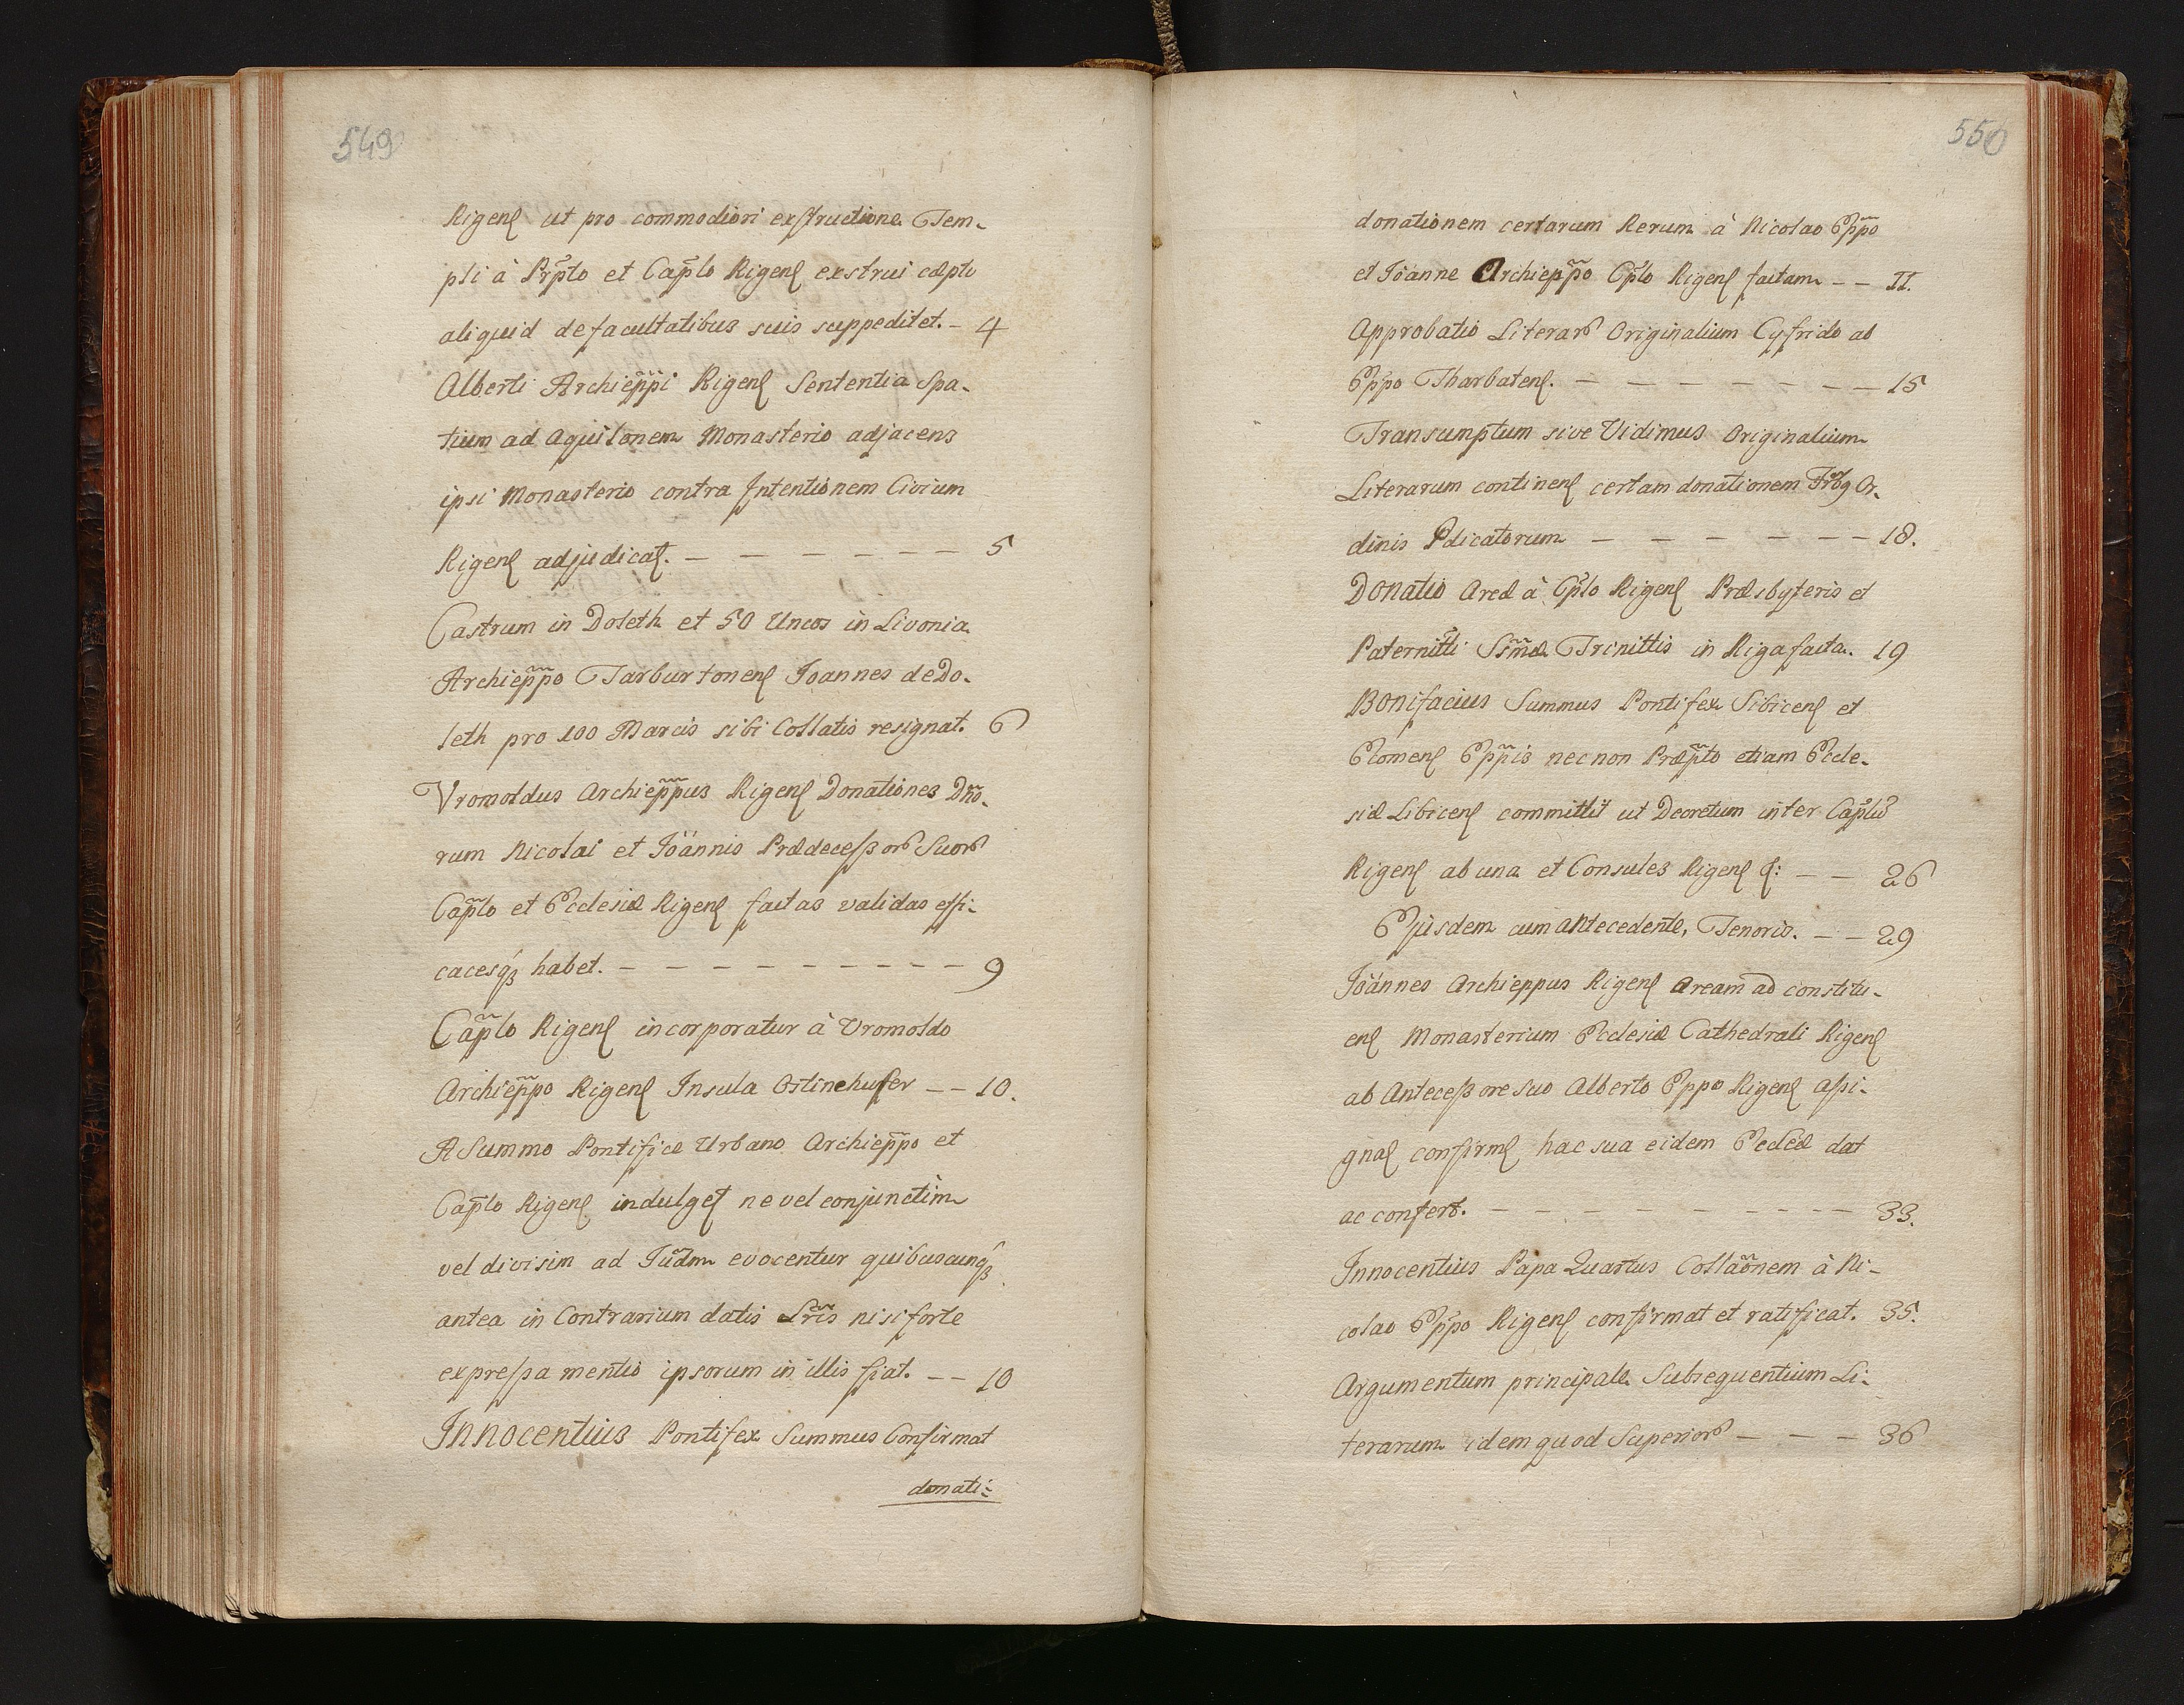 549
Rigenʃ ut pro commodiori exstructione Tem-
pli à Prp̃to et Cap̃lo Rigenʃ exstrui cæpto
aliquid de facultatibus suis suppeditet. - 4
Alberti Archiep̃pi Rigenʃ Sententia Spa-
tium ad Aquilonem Monasterio adjacens
ipsi Monasterio contra Intentionem Civium
Rigenʃ adjudicaʃ. - - - - - - - 5
Castrum in Doleth et 50 Uncos in Livonia
Archiep̃po Tarburtonenʃ Joannes de Do-
leth pro 100 Marcis sibi Collatis resignat. 6
Vromoldus Archiep̃pus Rigenʃ Donationes Dño-
rum Nicolai et Joánnis Prædecessorꝝ Suorꝝ
Cap̃lo et Ecclesiæ Rigenʃ factas validas effi-
cacesqꝫ habet. - - - - - - - - - - 9
Cap̃lo Rigenʃ incorporatur à Vromoldo
Archiep̃po Rigenʃ Insula Ostinehufer - - 10.
A Summo Pontifice Urbano Archiep̃po et
Cap̃lo Rigenʃ indulgeʃ ne vel conjunctim
vel divisim ad Iud̃m evocentur quibuscunqꝫ
antea in Contrarium datis Lr̃is nisi forte
expressa mentio ipsorum in illis fiat. - - 10
Innocentius Pontifex Summus Confirmat
donati-
550
donationem certarum Rerum à Nicolao Ep̃po
et Joánne Archiep̃po Cp̃lo Rigenʃ factam - - II.
Approbatio Literarꝝ Originalium Cyfrido ab
Ep̃po Tharbatenʃ. - - - - - - - - 15
Transumptum sive Vidimus Originalium
Literarum continenʃ certam donationem Fr̃ꝝ Or-
dinis Pdicatorum - - - - - - - 18.
Donatio Areæ à Cp̃lo Rigenʃ Præsbyteris et
Paternit̃ti Ss̃mæ Trinittis in Riga facta. 19
Bonifacius Summus Pontifex Sibicenʃ et
Elomenʃ Ep̃pis nec non Præp̃to etiam Eccle-
siæ Libicenʃ committit ut Decretum inter Cap̃lũ
Rigenʃ ab una et Consules Rigenʃ ʃ: - - 26
Ejusdem cum antecedente, Tenoris. - - 29
Joánnes Archieppus Rigenʃ aream ad constitu-
enʃ Monasterium Ecclesiæ Cathedrali Rigenʃ
ab Antecessore suo Alberto Eppo Rigenʃ assi-
gnaʃ confirmʃ hac sua eidem Eccl̃æ dat
ac confert. - - - - - - - - - 33.
Innocentius Papa Quartus Collaõnem à Ni-
colao Ep̃po Rigenʃ confirmat et ratificat. 35.
Argumentum principale Subsequentium Li-
terarum idem quod Superiorꝝ - - - - 36